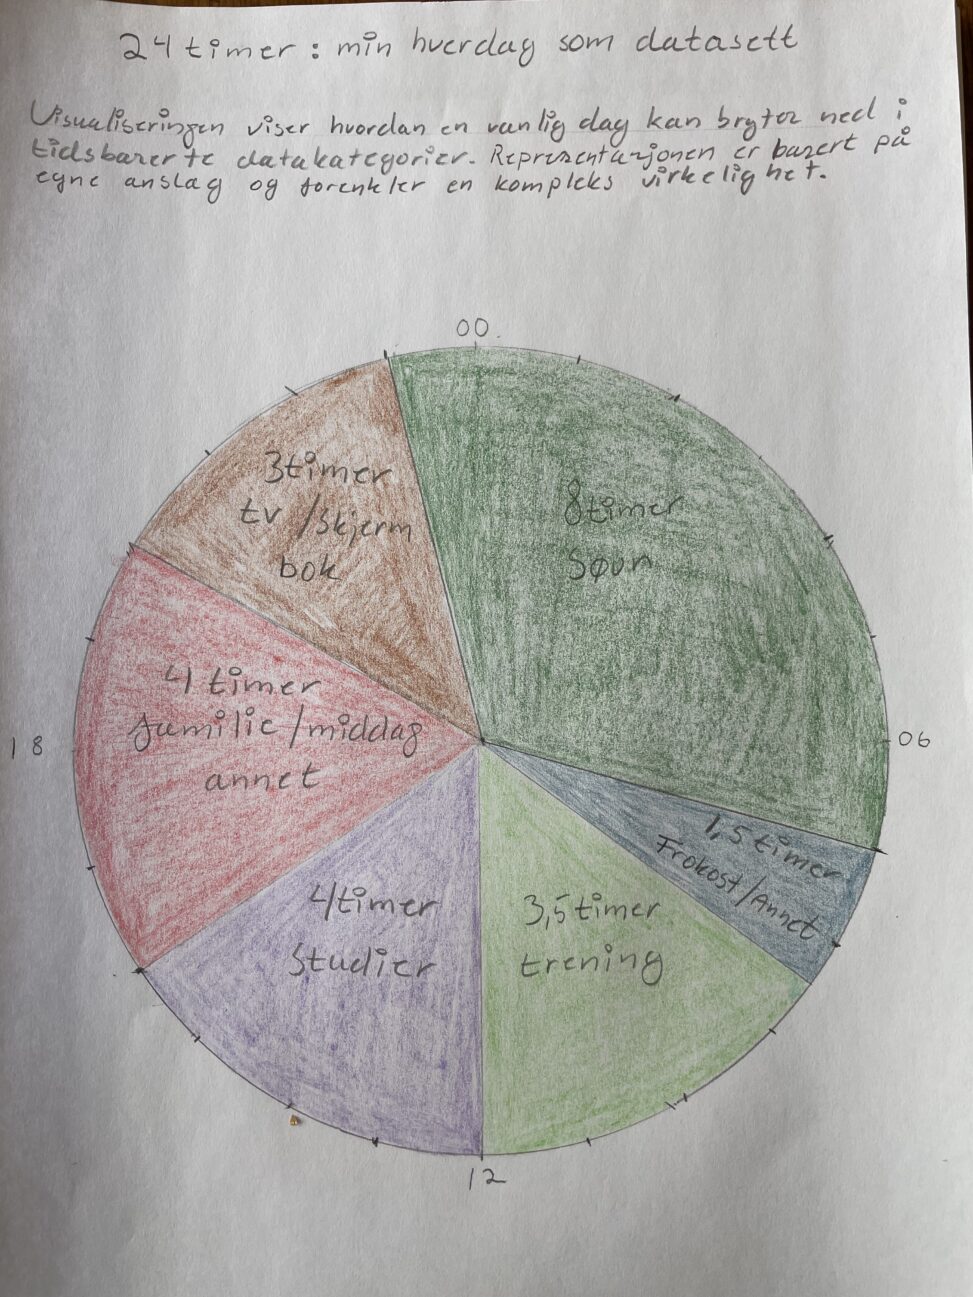 24 timer: min hverdag som datasett
Visualiseringen viser hvordan en vanlig dag kan brytes ned i
tidsbaserte datakategorier. Representasjonen er basert på
egne anslag og forenkler en kompleks virkelighet.
00
3timer
tv/skjerm
bok
8timer
Søvn
4 timer
familie/middag
annet
18
06
1,5 timer
Frokost/Annet
4timer
Studier
3,5timer
trening
12